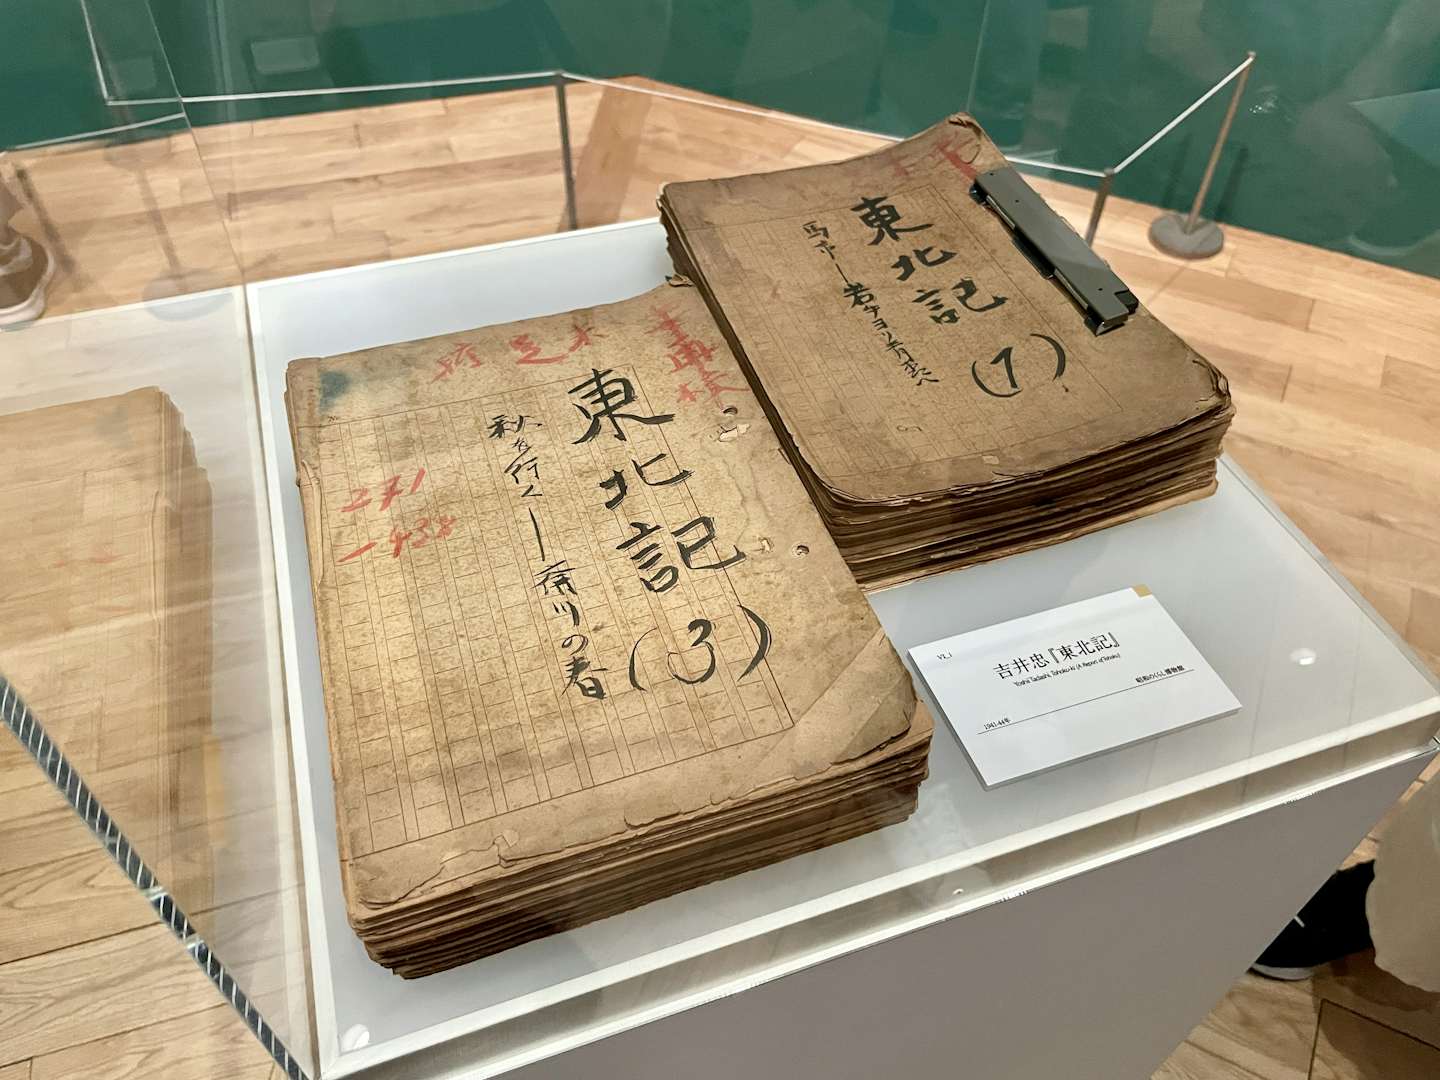 東北記
(3)
秋を行く—斎川の春
271
—438
東北記
(7)
馬市—岩手ヨリ青森へ
VI_1
吉井忠『東北記』
Yoshii Tadashi, Tohoku-ki (A Report of Tohoku)
昭和のくらし博物館
1941-44年